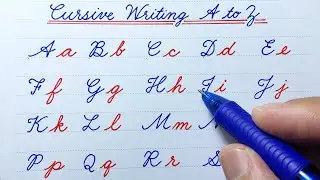 Cursive Writing A to Z
A a B b C c D d E e
F f G g H h I i J j
K k L l M m N
P p Q q R r S